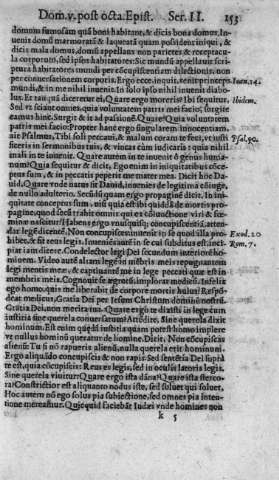 Dom.v. post octa. Epist. Ser. II. 153
domum sumosam quã boni habitant, & dicis bona domor. In-
uenit domũ marmoratã & laqueatã quam possident iniqui, &
dicis mala domus, domũ appellans non parietes & receptacu-
la corporum, sed ipsos habitatores: Sic mundũ appellauit scri-
ptura habitatores mundi per cõcupiscentiam dilectionis, non
per conuersationem corporis. Ergo ecce. inquit, venit princeps Ioan. 14.
mundi, & in me nihil inuenit. In solo ipso nihil inuenit diabo-
lus. Et tanquã diceretur ei, Quare ergo moreris? Ibi sequitur, Ibidem.
Sed vt sciant omnes, quia voluntatem patris mei facio, surgite
eamus hinc. Surgit & it ad passionẽ. Quare? Quia voluntatem
patris mei facio: Propter hanc ergo singularem innocentiam,
ait Psalmus, Tibi soli peccaui, & malum coram te feci, vt iusti- Psal. 50.
ficeris in sermonibus tuis, & vincas cùm iudicaris: quia nihil
mali in te inuenit. Quare autem in te inuenit ô genus huma-
num? Quia sequitur & dicit, Ego enim in iniquitatibus conce-
ptus sum, & in peccatis peperit me mater mea. Dicit hoc Da-
uid. Quære vnde natus sit Dauid, inuenies de legitima coniuge,
de nullo adulterio. Secũdũ quam ergo propaginẽ dicit, In ini-
quitate conceptus sum, nisi quia est ibi quædã de mortis pro-
pagine, quod secũ trahit omnis qui ex cõiunctione viri & fœ-
minæ nascitur? Habens ergo vnusquisq; concupiscentiã, atten-
dat legẽ dicentẽ, Non concupisces: inuenit in se quod illa pro- Exod. 20
hibet, & fit reus legis. Inueniẽs autẽ in se cui subditus est, inci- Rom. 7.
piat iam dicere, Condelector legi Dei secundum interiorẽ ho-
minem. Video autẽ aliam legẽ in mẽbris meis repugnantem
legi mentis meæ, & captiuantẽ me in lege peccati quæ est in
membris meis. Cognouit se ægrotũ, imploret medicũ. Infelix
ego homo, quis me liberabit de corpore mortis huius? Respõ-
deat medicus, Gratia Dei per Iesum Christum dominũ nostrũ.
Gratia Dei, non merita tua. Quare ergo te dixisti in lege cum
iustitia sine querela conuersatum? Attẽdite, Sine querela dixit
hominum. Est enim quædã iustitia quam potest homo implere
vt nullus hominũ queratur de homine. Dicit, Non cõcupiscas
alienũ. Tu si nõ rapueris alienũ, nulla querela erit hominum.
Ergo aliquãdo concupiscis & non rapis. Sed sententia Dei suprà
te est, quia concupiscis: Reus es legis, sed in oculis latoris legis.
Sine querela viuitur? Quare ergo ista dãna? Quare ista sterco-
ra? Constrictior est aliquanto nodus iste, sed soluet qui soluet.
Hoc autem nõ ego solus pia subiectione, sed omnes pia inten-
tione mereamur. Quicquid faciebãt Iudæi vnde homines non
k 5